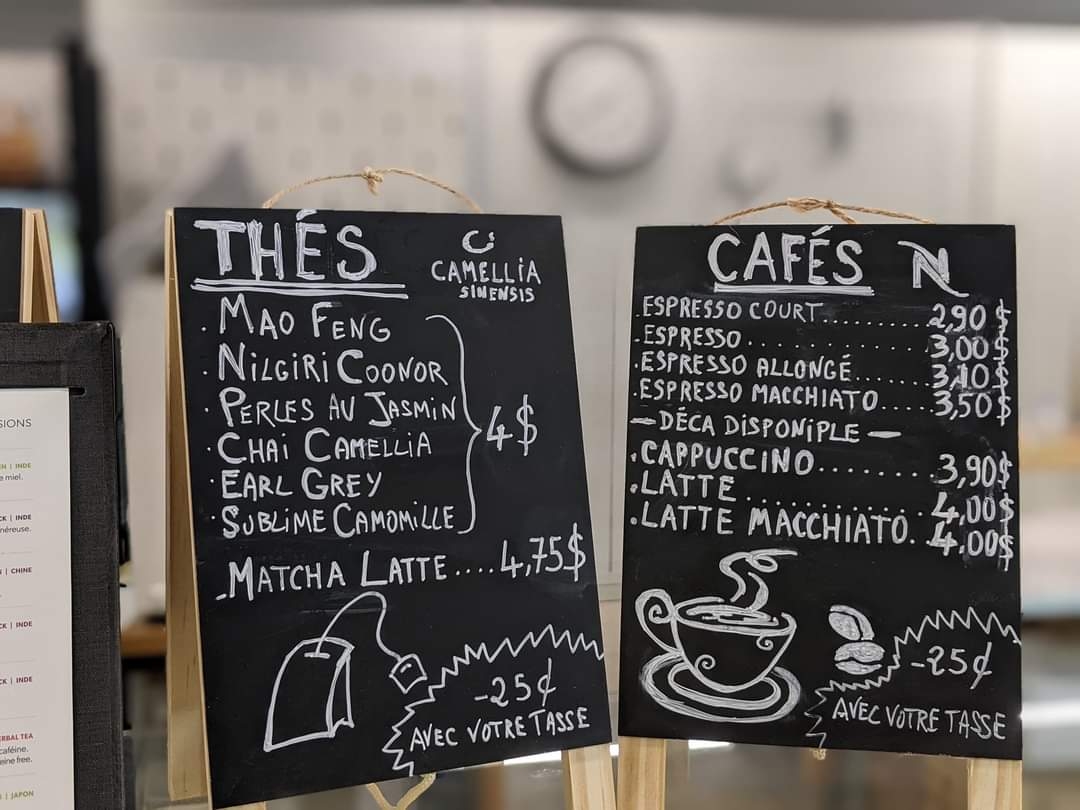 SIONS
EN | INDE
e miel.
CK | INDE
néreuse.
N | CHINE
CK | INDE
CK | INDE
ERBAL TEA
caféine.
eine free.
| JAPON
THÉS
CAMELLiA
SINENSIS
. MAO FENG
. NiLGiRi COONOR
. PERLES AU JASMiN
. CHAi CAMELLiA
. EARL GREY
. SUBLiME CAMOMiLLE
4$
- MATCHA LATTE .... 4,75$
-25¢
AVEC VOTRE TASSE
CAFÉS N
. ESPRESSO COURT........... 2,90 $
. ESPRESSO................ 3,00 $
. ESPRESSO ALLONGÉ........ 3,10 $
. ESPRESSO MACCHiATO..... 3,50 $
— DÉCA DiSPONiPLE —
. CAPPUCCiNO........... 3,90$
. LATTE................ 4,00$
. LATTE MACCHiATO.. 4,00$
-25¢
AVEC VOTRE TASSE